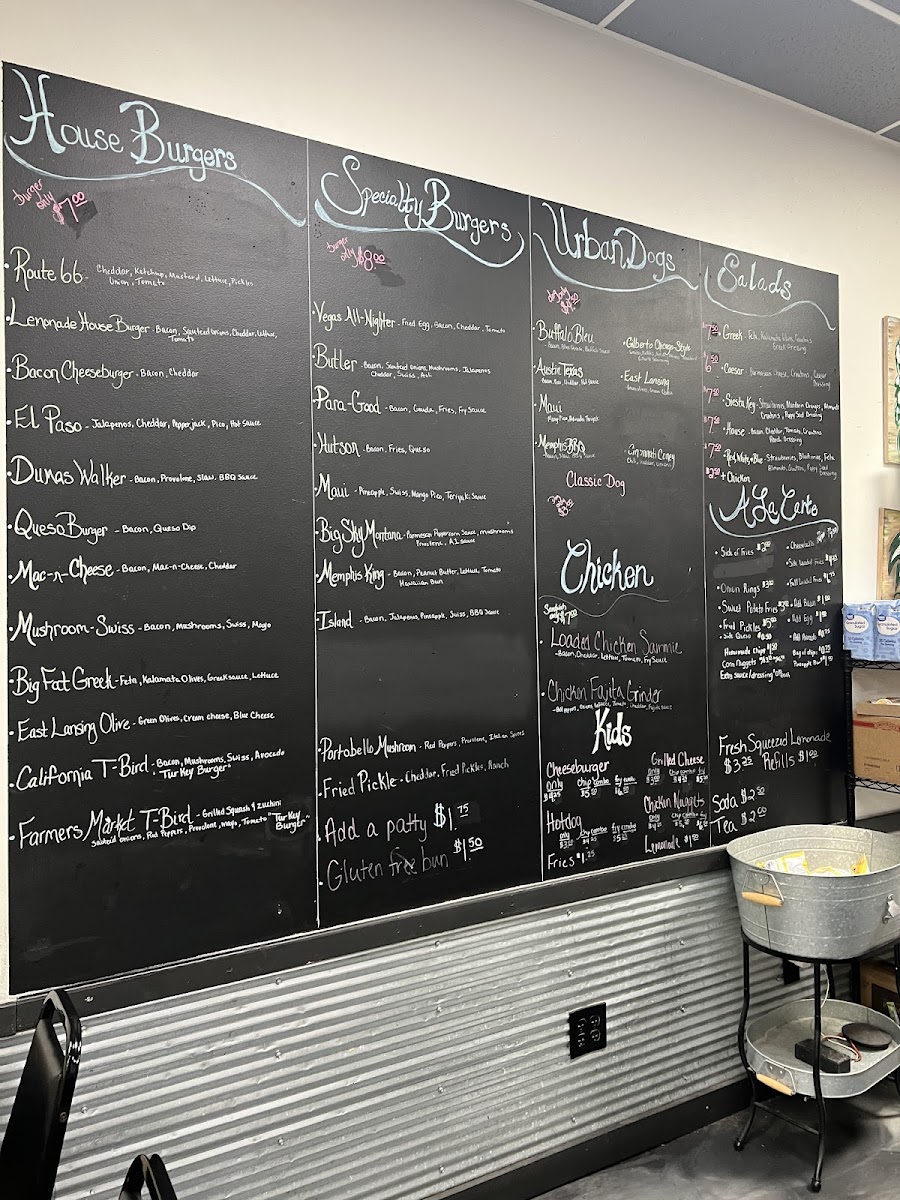 House Burgers
burger only $7.00
Route 66 - Cheddar, Ketchup, Mustard, Lettuce, Pickles
Onion, Tomato
Lemonade House Burger - Bacon, Sauteed onions, Cheddar, Lettuce,
Tomato
Bacon Cheeseburger - Bacon, Cheddar
El Paso - Jalapenos, Cheddar, Pepper jack, Pico, Hot Sauce
Dumas Walker - Bacon, Provolone, Slaw, BBQ Sauce
Queso Burger - Bacon, Queso Dip
Mac-n-Cheese - Bacon, Mac-n-Cheese, Cheddar
Mushroom-Swiss - Bacon, Mushrooms, Swiss, Mayo
Big Fat Greek - Feta, Kalamata Olives, Greek sauce, Lettuce
East Lansing Olive - Green Olives, Cream cheese, Blue Cheese
California T-Bird - Bacon, Mushrooms, Swiss, Avocado
"Turkey Burger"
Farmers Market T-Bird - Grilled Squash & Zuchini
Sauteed onions, Red Peppers, Provolone, mayo, Tomato "Turkey Burger"
Specialty Burgers
burger only $8.00
Vegas All-Nighter - Fried Egg, Bacon, Cheddar, Tomato
Butler - Bacon, Sauteed Onions, Mushrooms, Jalapenos
Cheddar, Swiss,
Para-Good - Bacon, Gouda, Fries, Fry Sauce
Hutson - Bacon, Fries, Queso
Maui - Pineapple, Swiss, Mango Pico, Teriyaki Sauce
Big Sky Montana - Parmesan Peppercorn Sauce, mushrooms
Provolone, A1 sauce
Memphis King - Bacon, Peanut Butter, Lettuce, Tomato
Hawaiian Bun
Island - Bacon, Jalapenos, Pineapple, Swiss, BBQ Sauce
Portobello Mushroom - Red Peppers, Provolone, Italian Spices
Fried Pickle - Cheddar, Fried Pickles, Ranch
Add a patty $1.75
Gluten free bun $1.50
Urban Dogs
Buffalo Bleu
Gilberto Chicago-Style
Austin Texas
East Lansing
Maui
Memphis BBQ
Cincinnati Coney
Classic Dog
Chicken
Loaded Chicken Sammie
- Bacon, Cheddar, Lettuce, Tomato, Fry Sauce
Chicken Fajita Grinder
Kids
Cheeseburger
Grilled Cheese
Hotdog
Chicken Nuggets
Fries $1.25
Lemonade
Salads
Greek - Feta, Kalamata Olives,
Greek Dressing
Caesar - Parmesan Cheese, Croutons, Caesar
Dressing
Siesta Key - Strawberries, Mandarin Oranges, Almonds
Croutons, Poppy Seed Dressing
House - Bacon, Cheddar, Tomato, Croutons
Ranch Dressing
Red White n Blue - Strawberries, Blueberries, Feta
Almonds, Croutons, Poppy Seed
Dressing
+ Chicken
A La Carte
Side of Fries
Onion Rings
Sweet Potato Fries
Add Bacon
Fried Pickles
Add Egg
Side Queso
Add Avocado
Homemade chips
Bag of chips
Corn Nuggets
Pineapple
Extra sauce/dressing
Fresh Squeezed Lemonade
$3.25 Refills $1.00
Soda $2.50
Tea $2.00